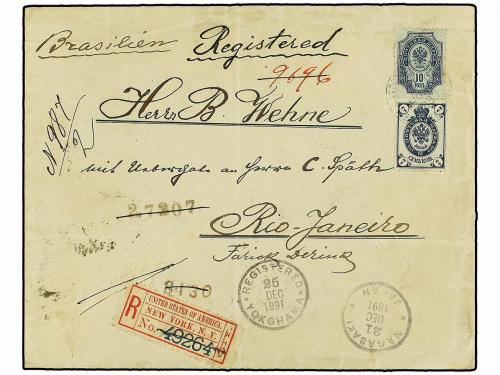 Brasilien Registered
9696
10
КОП
7 7
СЕМЬ КОП.
7 7
Herrn B. Wehne
N 987/2
mit Uebergabe an Herrn C. Späth
27207
Rio-Janeiro
8130
REGISTERED
25
DEC
1891
YOKOHAMA
NAGASAKI
21
DEC
1891
JAPAN
R
UNITED STATES OF AMERICA.
NEW YORK, N.Y.
No. 49264